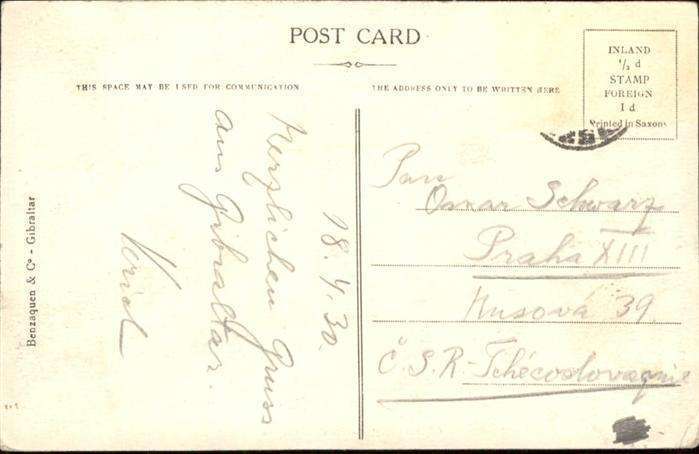 POST CARD
THIS SPACE MAY BE USED FOR COMMUNICATION
THE ADDRESS ONLY TO BE WRITTEN HERE
INLAND
½ d
STAMP
FOREIGN
1 d
Printed in Saxony
Benzaquen & Co - Gibraltar
18.4.30.
Herzlichen Gruss
aus Gibraltar.
Pan
Oscar Schwarz
Praha XIII
Husová 39
Č.S.R-Tchécoslovaquie